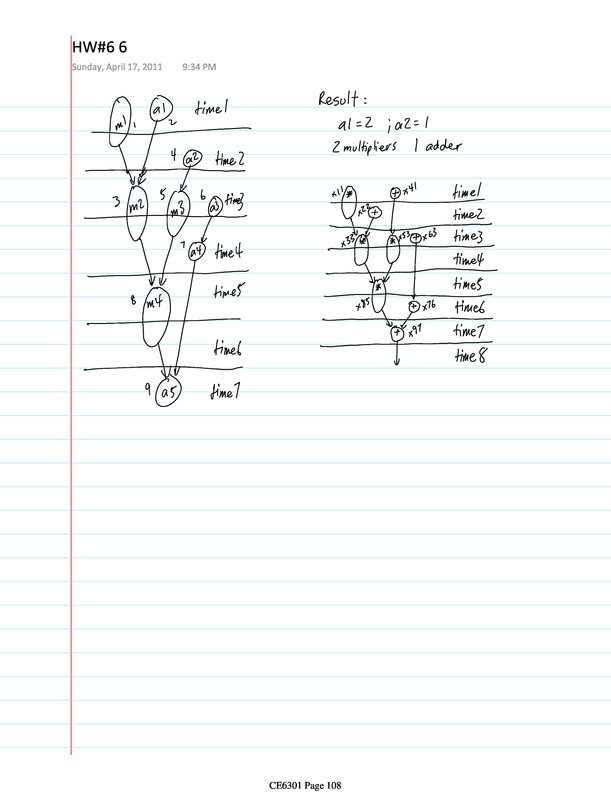 HW#6 6
Sunday, April 17, 2011 9:34 PM
m1 1 a1 2 time1
4 a2 time2
3 m2 5 m3 6 a3 time3
7 a4 time4
8 m4 time5
time6
9 a5 time7
Result:
a1=2 ; a2=1
2 multipliers 1 adder
x11 * + x41 time1
x22 + time2
x33 * * x53 + x63 time3
time4
* time5
x85 + x76 time6
+ x97 time7
time8
CE6301 Page 108